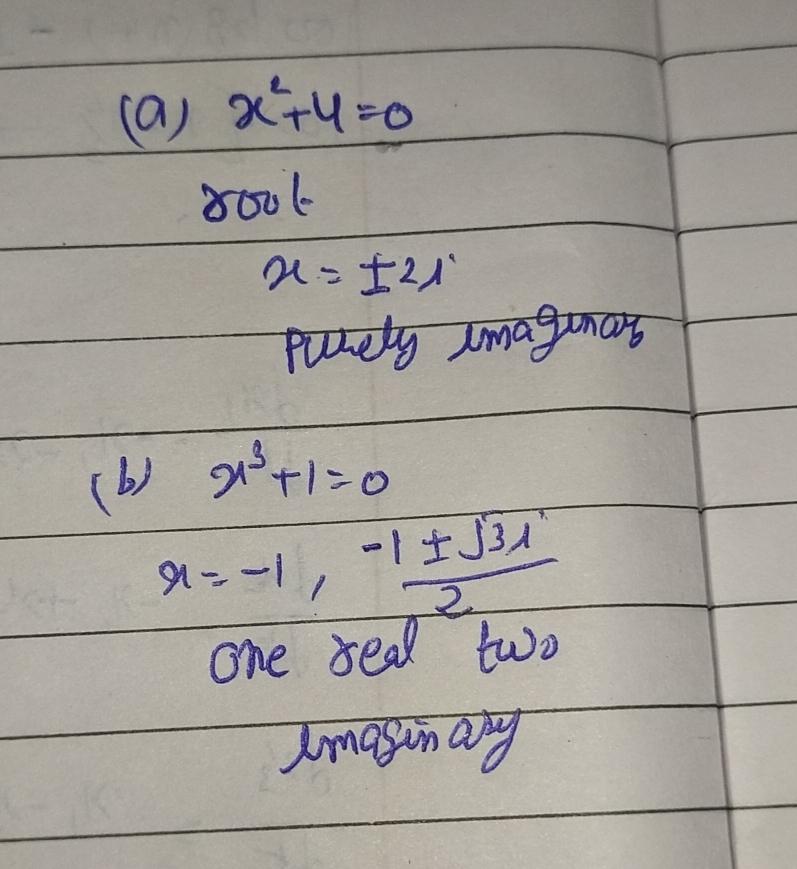 (a) x²+4=0
root
x = ±2i
Purely imaginary
(b) x³+1=0
x = -1, (-1 ± √3i)/2
one real two
imaginary